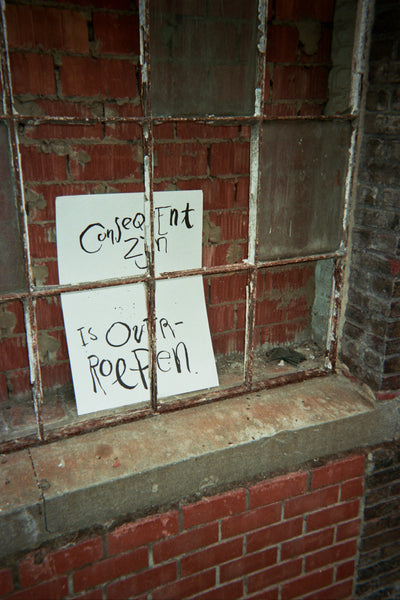 ConseqUEnt
Zijn
Is OVER-
RoEpEn.